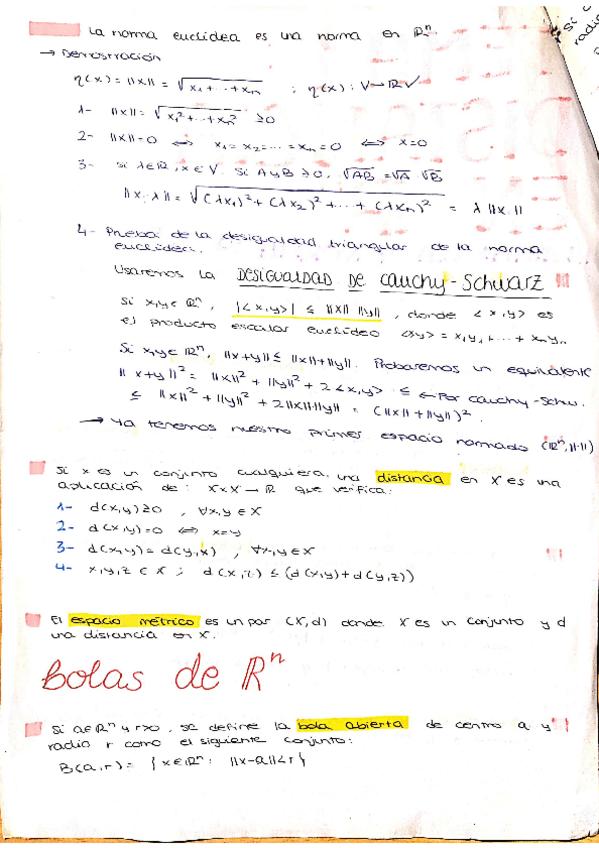 La norma euclídea es una norma en ℝⁿ
→ Demostración
η(x) = ||x|| = √x₁ + ... + xₙ ; η(x): V→ℝ ✓
1- ||x|| = √x₁² + ... + xₙ² ≥0
2- ||x||=0 ⇔ x₁ = x₂ = ... = xₙ = 0 ⇔ x=0
3- Si λ∈ℝ, x∈V. Si A y B ≥0, √AB = √A √B
||x·λ|| = √(λx₁)² + (λx₂)² + ... + (λxₙ)² = λ ||x||
4- Prueba de la desigualdad triangular de la norma
euclídea.
Usaremos la DESIGUALDAD DE Cauchy-Schwarz
Si x,y∈ℝⁿ, |<x,y>| ≤ ||x|| ||y||, donde <x,y> es
el producto escalar euclídeo <xy> = x₁y₁ + ... + xₙyₙ
Si x,y∈ℝⁿ, ||x+y|| ≤ ||x||+||y||. Probaremos un equivalente
||x+y||² = ||x||² + ||y||² + 2<x,y> ≤ ← Por Cauchy-Schw.
≤ ||x||² + ||y||² + 2||x||·||y|| = (||x||+||y||)².
→ Ya tenemos nuestro primer espacio normado (ℝⁿ,||·||)
Si x es un conjunto cualquiera, una distancia en X es una
aplicación de: X×X → ℝ que verifica:
1- d(x,y) ≥0 , ∀x,y ∈ X
2- d(x,y)=0 ⇔ x=y
3- d(x,y) = d(y,x) , ∀x,y∈X
4- x,y,z ∈ X ; d(x,z) ≤ (d(x,y)+d(y,z))
El espacio métrico es un par (X,d) donde X es un conjunto y d
una distancia en X.
bolas de ℝⁿ
Si a∈ℝⁿ y r>0, se define la bola abierta de centro a y
radio r como el siguiente conjunto:
B(a,r) = {x∈ℝⁿ: ||x-a||<r}
Si
radio